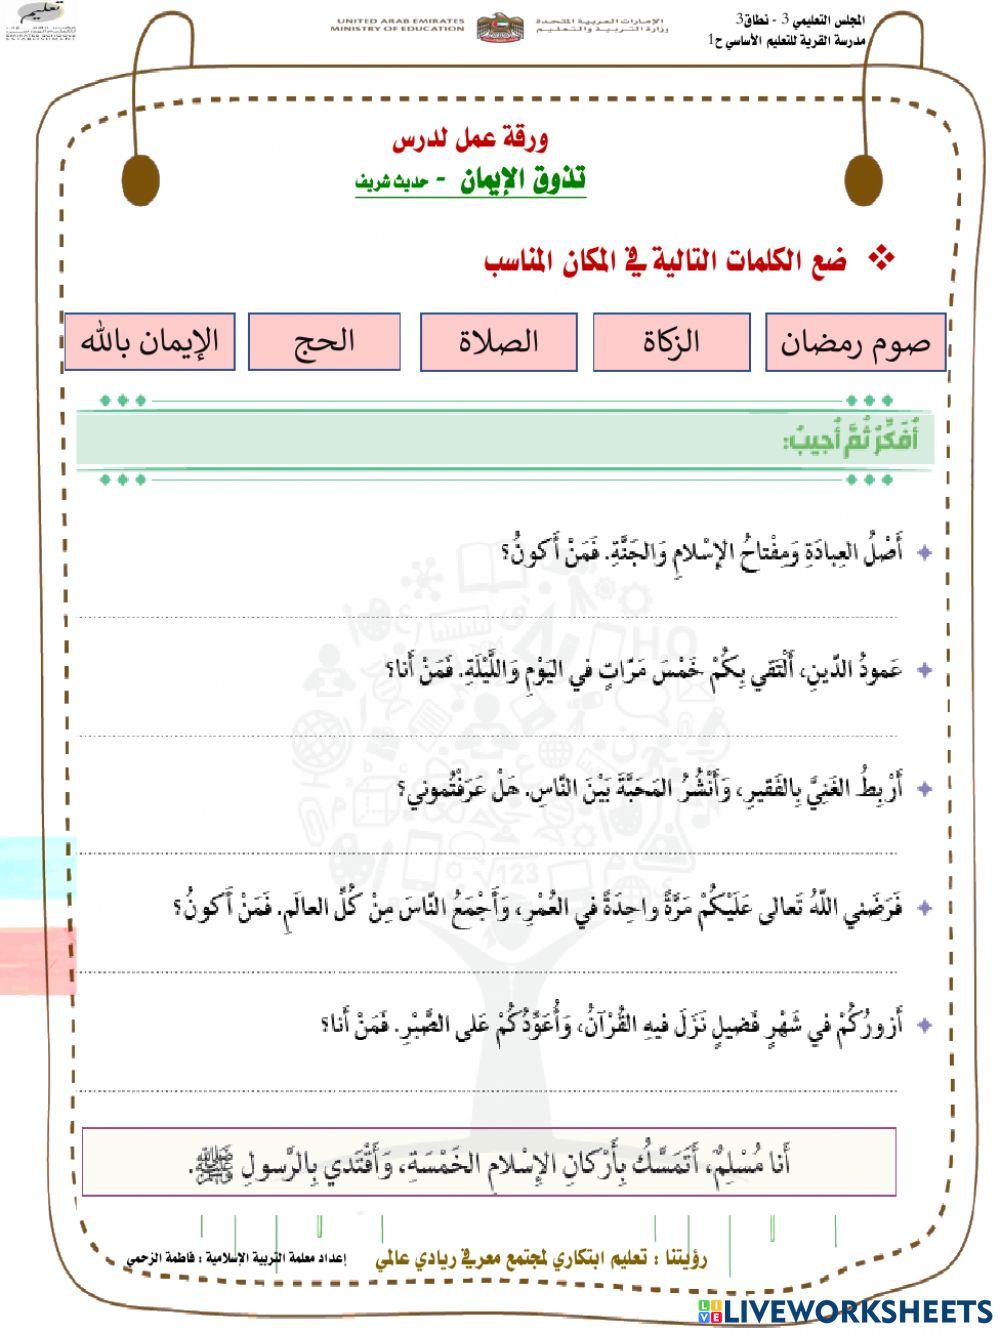 تعليم
EMIRATES SCHOOLS
ESTABLISHMENT
UNITED ARAB EMIRATES
MINISTRY OF EDUCATION
الإمارات العربية المتحدة
وزارة التربية والتعليم
المجلس التعليمي 3 - نطاق3
مدرسة القرية للتعليم الأساسي ح1
ورقة عمل لدرس
تذوق الإيمان - حديث شريف
❖ ضع الكلمات التالية في المكان المناسب
صوم رمضان
الزكاة
الصلاة
الحج
الإيمان بالله
أُفَكِّرُ ثُمَّ أُجيبُ:
أَصْلُ العِبادَةِ وَمِفْتاحُ الإِسْلامِ وَالجَنَّةِ. فَمَنْ أَكونُ؟
عَمودُ الدّينِ، أَلْتَقي بِكُمْ خَمْسَ مَرّاتٍ في اليَوْمِ وَاللَّيْلَةِ. فَمَنْ أَنا؟
أَرْبِطُ الغَنِيَّ بِالفَقيرِ، وَأَنْشُرُ المَحَبَّةَ بَيْنَ النَّاسِ. هَلْ عَرَفْتُموني؟
فَرَضَني اللَّهُ تَعالى عَلَيْكُمْ مَرَّةً واحِدَةً في العُمْرِ، وَأَجْمَعُ النَّاسَ مِنْ كُلِّ العالَمِ. فَمَنْ أَكونُ؟
أَزورُكُمْ في شَهْرٍ فَضيلٍ نَزَلَ فيهِ القُرْآنُ، وَأُعَوِّدُكُمْ عَلى الصَّبْرِ. فَمَنْ أَنا؟
أَنا مُسْلِمٌ، أَتَمَسَّكُ بِأَرْكانِ الإِسْلامِ الخَمْسَةِ، وَأَقْتَدي بِالرَّسولِ ﷺ.
رؤيتنا : تعليم ابتكاري لمجتمع معرفي ريادي عالمي
إعداد معلمة التربية الإسلامية : فاطمة الزحمي
LIVEWORKSHEETS